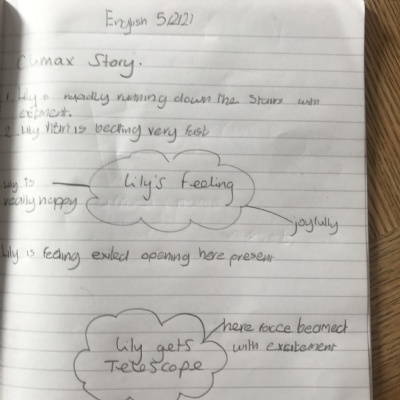 English 5/2/21
Climax Story.
1. Lily rapidly running down the stairs with
exitment.
2. Lily Heart is beating very fast
Lily's Feeling
Lily is
really happy
joyfully
Lily is feeling exited opening here present
Lily gets
Telescope
here face beamed
with excitement